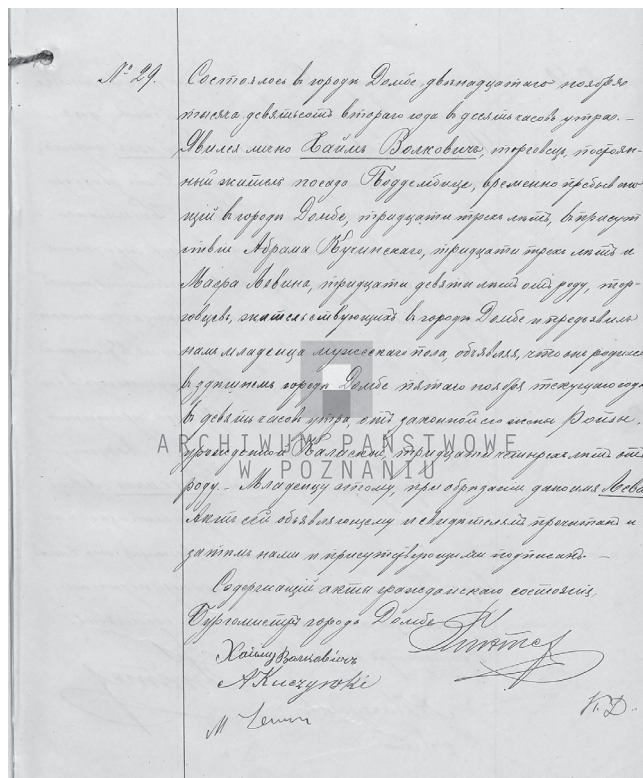 № 29.
Состоялось в городѣ Домбе, двѣнадцатаго ноября
тысяча девятьсотъ втораго года в десять часовъ утра. –
Явился лично Хаимъ Волковичъ, торговецъ, постоян-
ный житель посада Поддембице, временно пребываю-
щій в городѣ Домбе, тридцати трехъ лѣтъ, в присут
ствіи Абрама Кучинскаго, тридцати трехъ лѣтъ и
Маера Левина, тридцати девяти лѣтъ отъ роду, тор-
говцевъ, жительствующихъ в городѣ Домбе и предъявилъ
намъ младенца мужескаго пола, объявляя, что онъ родился
в здѣшнемъ городѣ Домбе пятаго ноября текущаго года
в девять часовъ утра отъ законной его жены Ройзы,
урожденной тридцати четырехъ лѣтъ отъ
роду. – Младенцу этому, при обрѣзаніи дано имя Лева
Актъ сей объявляющему и свидѣтелямъ прочитанъ и
затѣмъ нами и присутствующими подписанъ. –
Содержащій акты гражданскаго состоянія,
Бургомистръ города Домбе
Хаимъ Волковичъ
A Kuczyński
M Lewin
ARCHIWUM PAŃSTWOWE
W POZNANIU